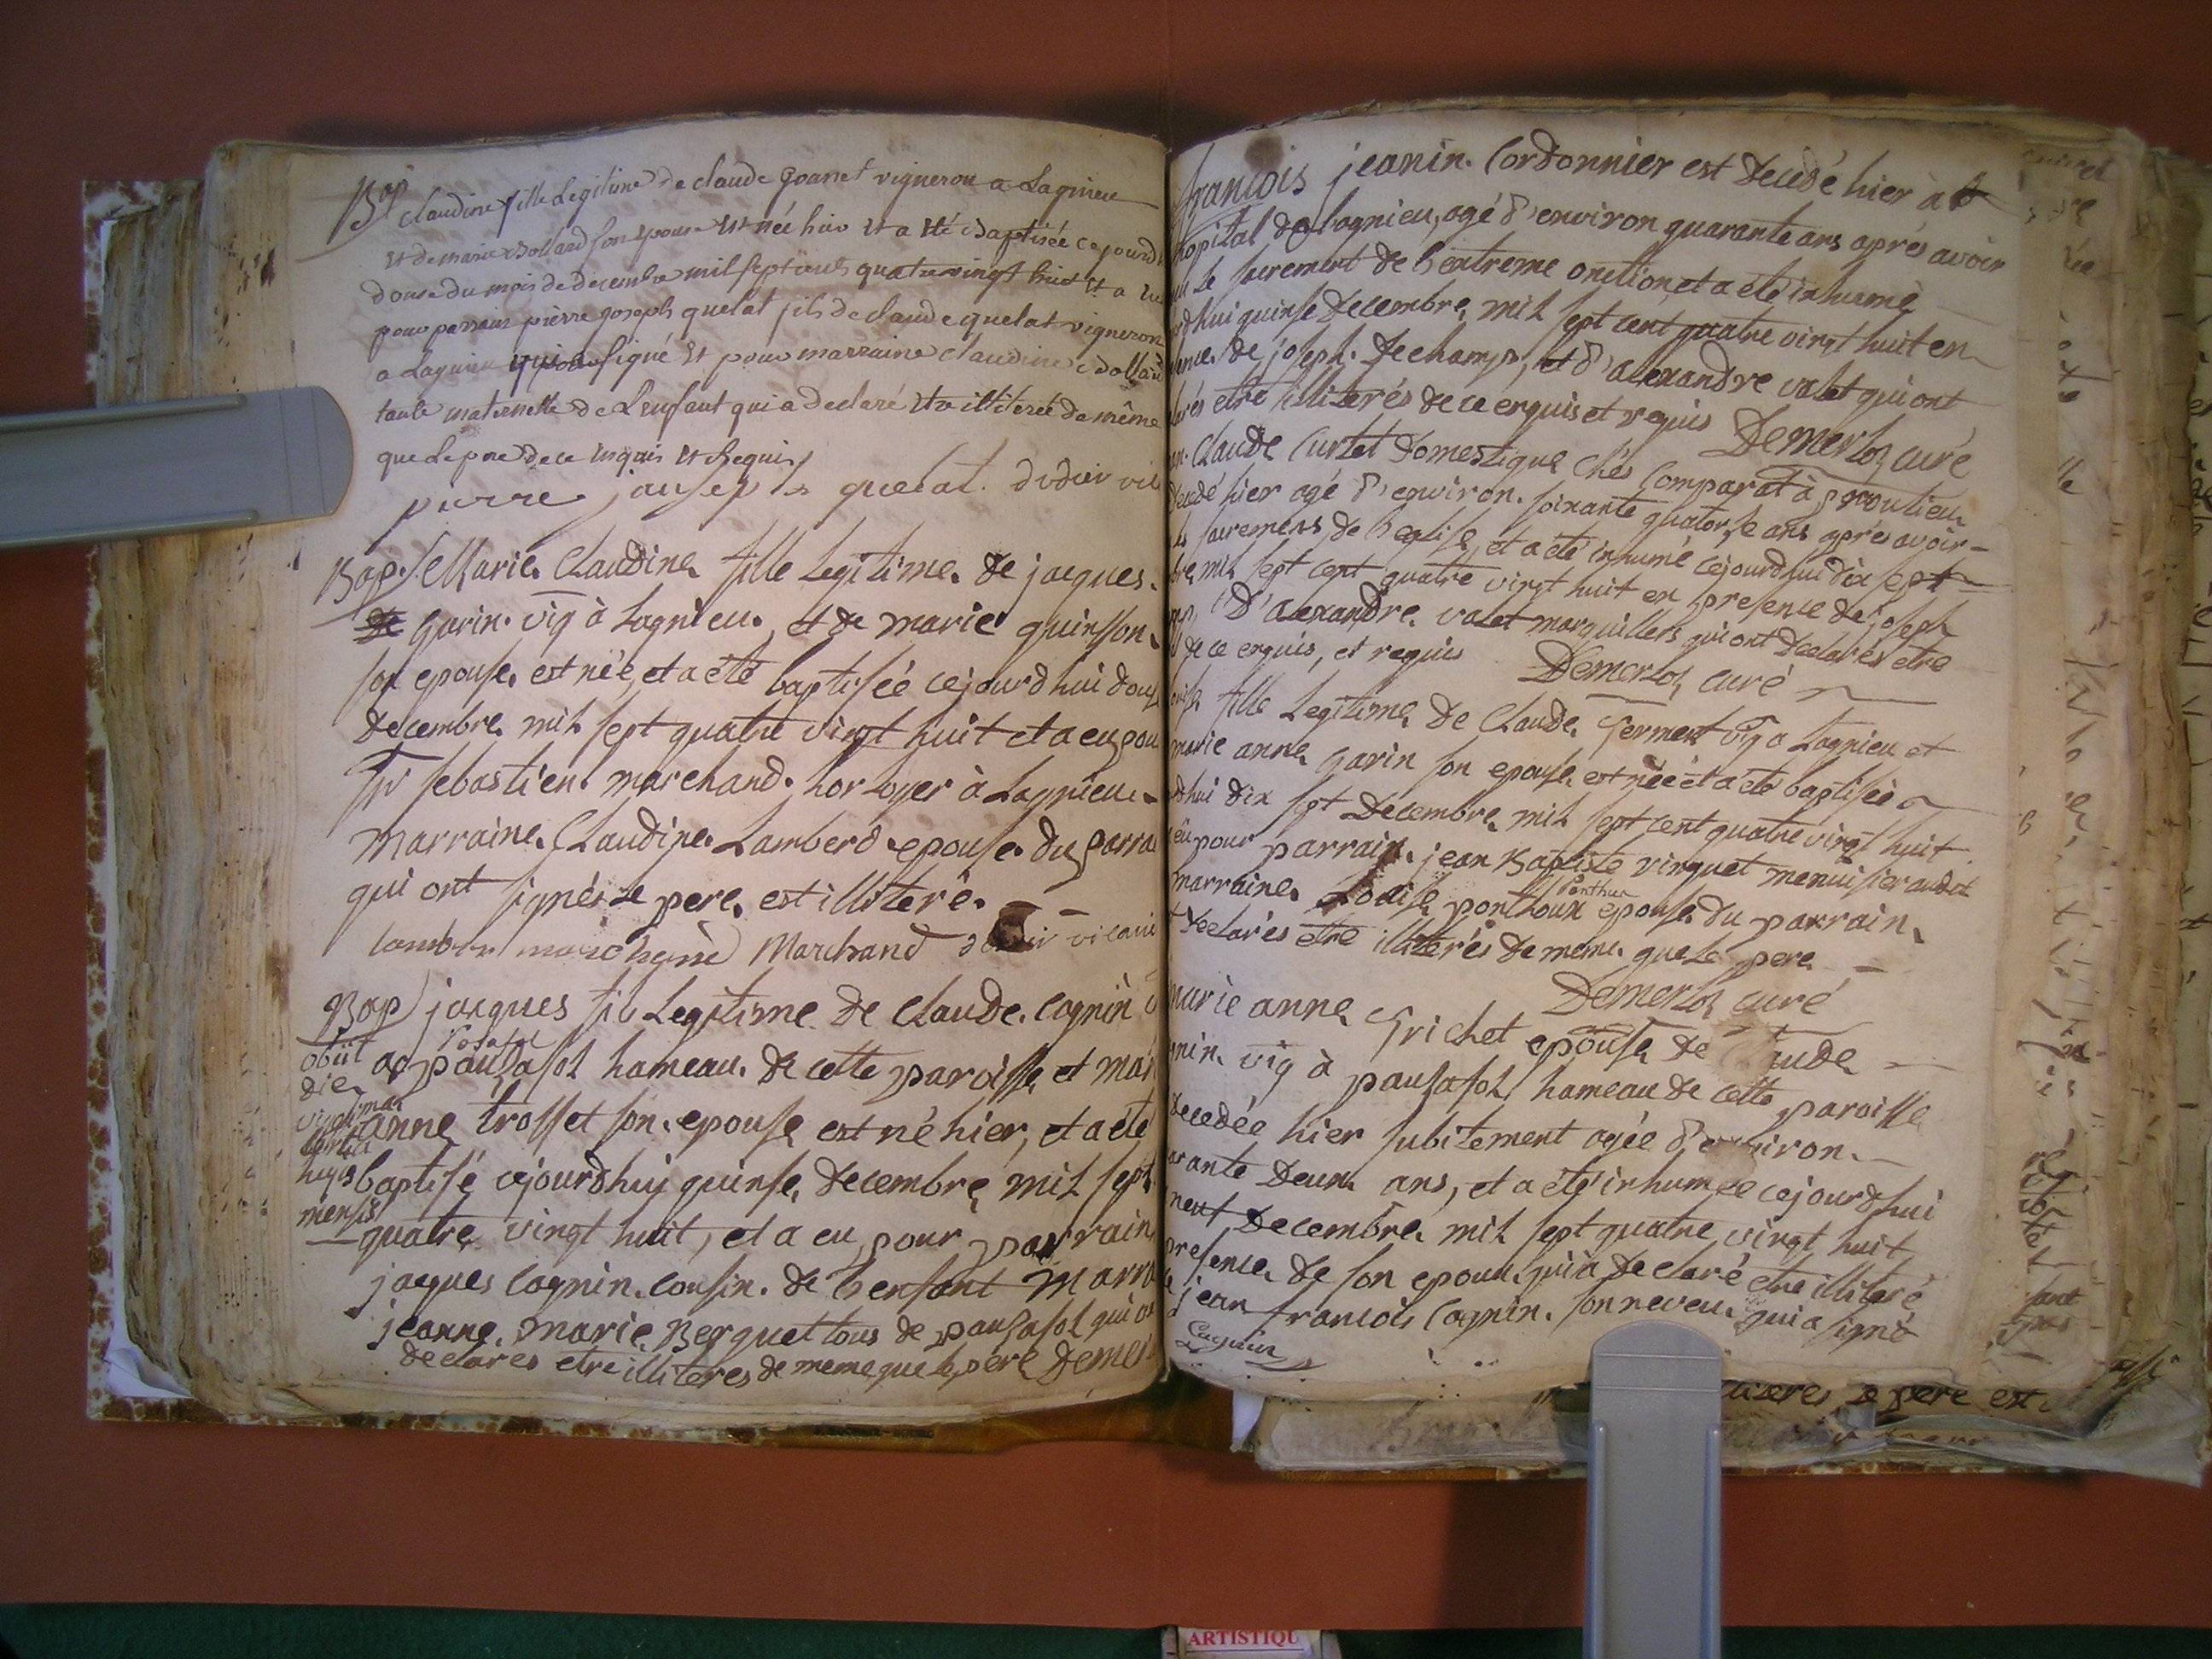 Bap Claudine fille Legitime de claude goanet vigneron a Lagnieu
Et de marie Bollard son Epouse Est née hier Et a Eté Baptisée cejourd
douse du mois de decembre mil sept cents quatrevingt huit Et a eu
pour parrain pierre joseph quelat fils de claude quelat vigneron
a Lagnieu qui a signé Et pour marraine claudine Bollard
tante maternelle de L'enfant qui a declaré Etre illiterée de même
que Le pere de ce Enquis Et Requis
pierre jausep quelat. didier vic
Bap. Marie Claudine fille Legitime de jacques
de Garin vig à Lagnieu, et de marie quinson
son epouse est née, et a été baptisée cejourdhui douse
Decembre mil sept quatre vingt huit et a eu pou
Sr Sebastien marchand horloger à Lagnieu
Marraine Claudine Lamberd epouse du parra
qui ont signés Le pere est illiteré.
lamber marchand Marchand vicaire
Bap jacques fils Legitime de Claude Cognin
obiit a pausafol hameau de cette paroisse et mar
die
anne trosset son epouse est né hier, et a été
hujus baptisé cejourdhuy quinse Decembre mil sept
mensis
quatre vingt huit, et a eu pour parrain
jacques Cognin cousin de l'enfant Marra
jeanne marie Berquet tous de pausafol qui on
declares etre illiteres de meme que le pere Demer
francois jeanin Cordonnier est Decedé hier à l
hopital de lagnieu, agé d'environ quarante ans aprés avoir
Le sacrement de l'extreme onction, et a été inhumé
dhui quinse Decembre mil sept cent quatre vingt huit en
sence de joseph Dechamps, et d'alexandre valet qui ont
larés etre illiterés de ce enquis et requis Demerloz curé
Claude Curtet Domestique chés Comparat à proulieu
Decedé hier agé d'environ soixante quatorse ans aprés avoir
Ls sacremens de l'eglise, et a été inhumé cejourdhui dix sept
bre mil sept cent quatre vingt huit en presence de joseph
D'alexandre valet marguilliers qui ont Declarés etre
de ce enquis, et requis Demerloz curé
fille Legitime de Claude ferment vig a Lagnieu et
marie anne Garin son epouse est née et a été baptisée
dhui dix sept Decembre mil sept cent quatre vingt huit
eu pour parrain jean Baptiste vinquet menuisier audit
marraine Louise ponthoux Ponthus epouse du parrain
Declarés etre illiterés de meme que Le pere
Demerloz curé
marie anne Grichet epouse de Claude
nin vig à pausafol hameau de cette paroisse
Decedée hier subitement agée d'environ
arante Deux ans, et a été inhumée cejourdhui
neuf Decembre mil sept quatre vingt huit
presence de son epoux qui a Declaré etre illiteré
jean francois Cognin son neveu qui a signé
Cognin
le pere est